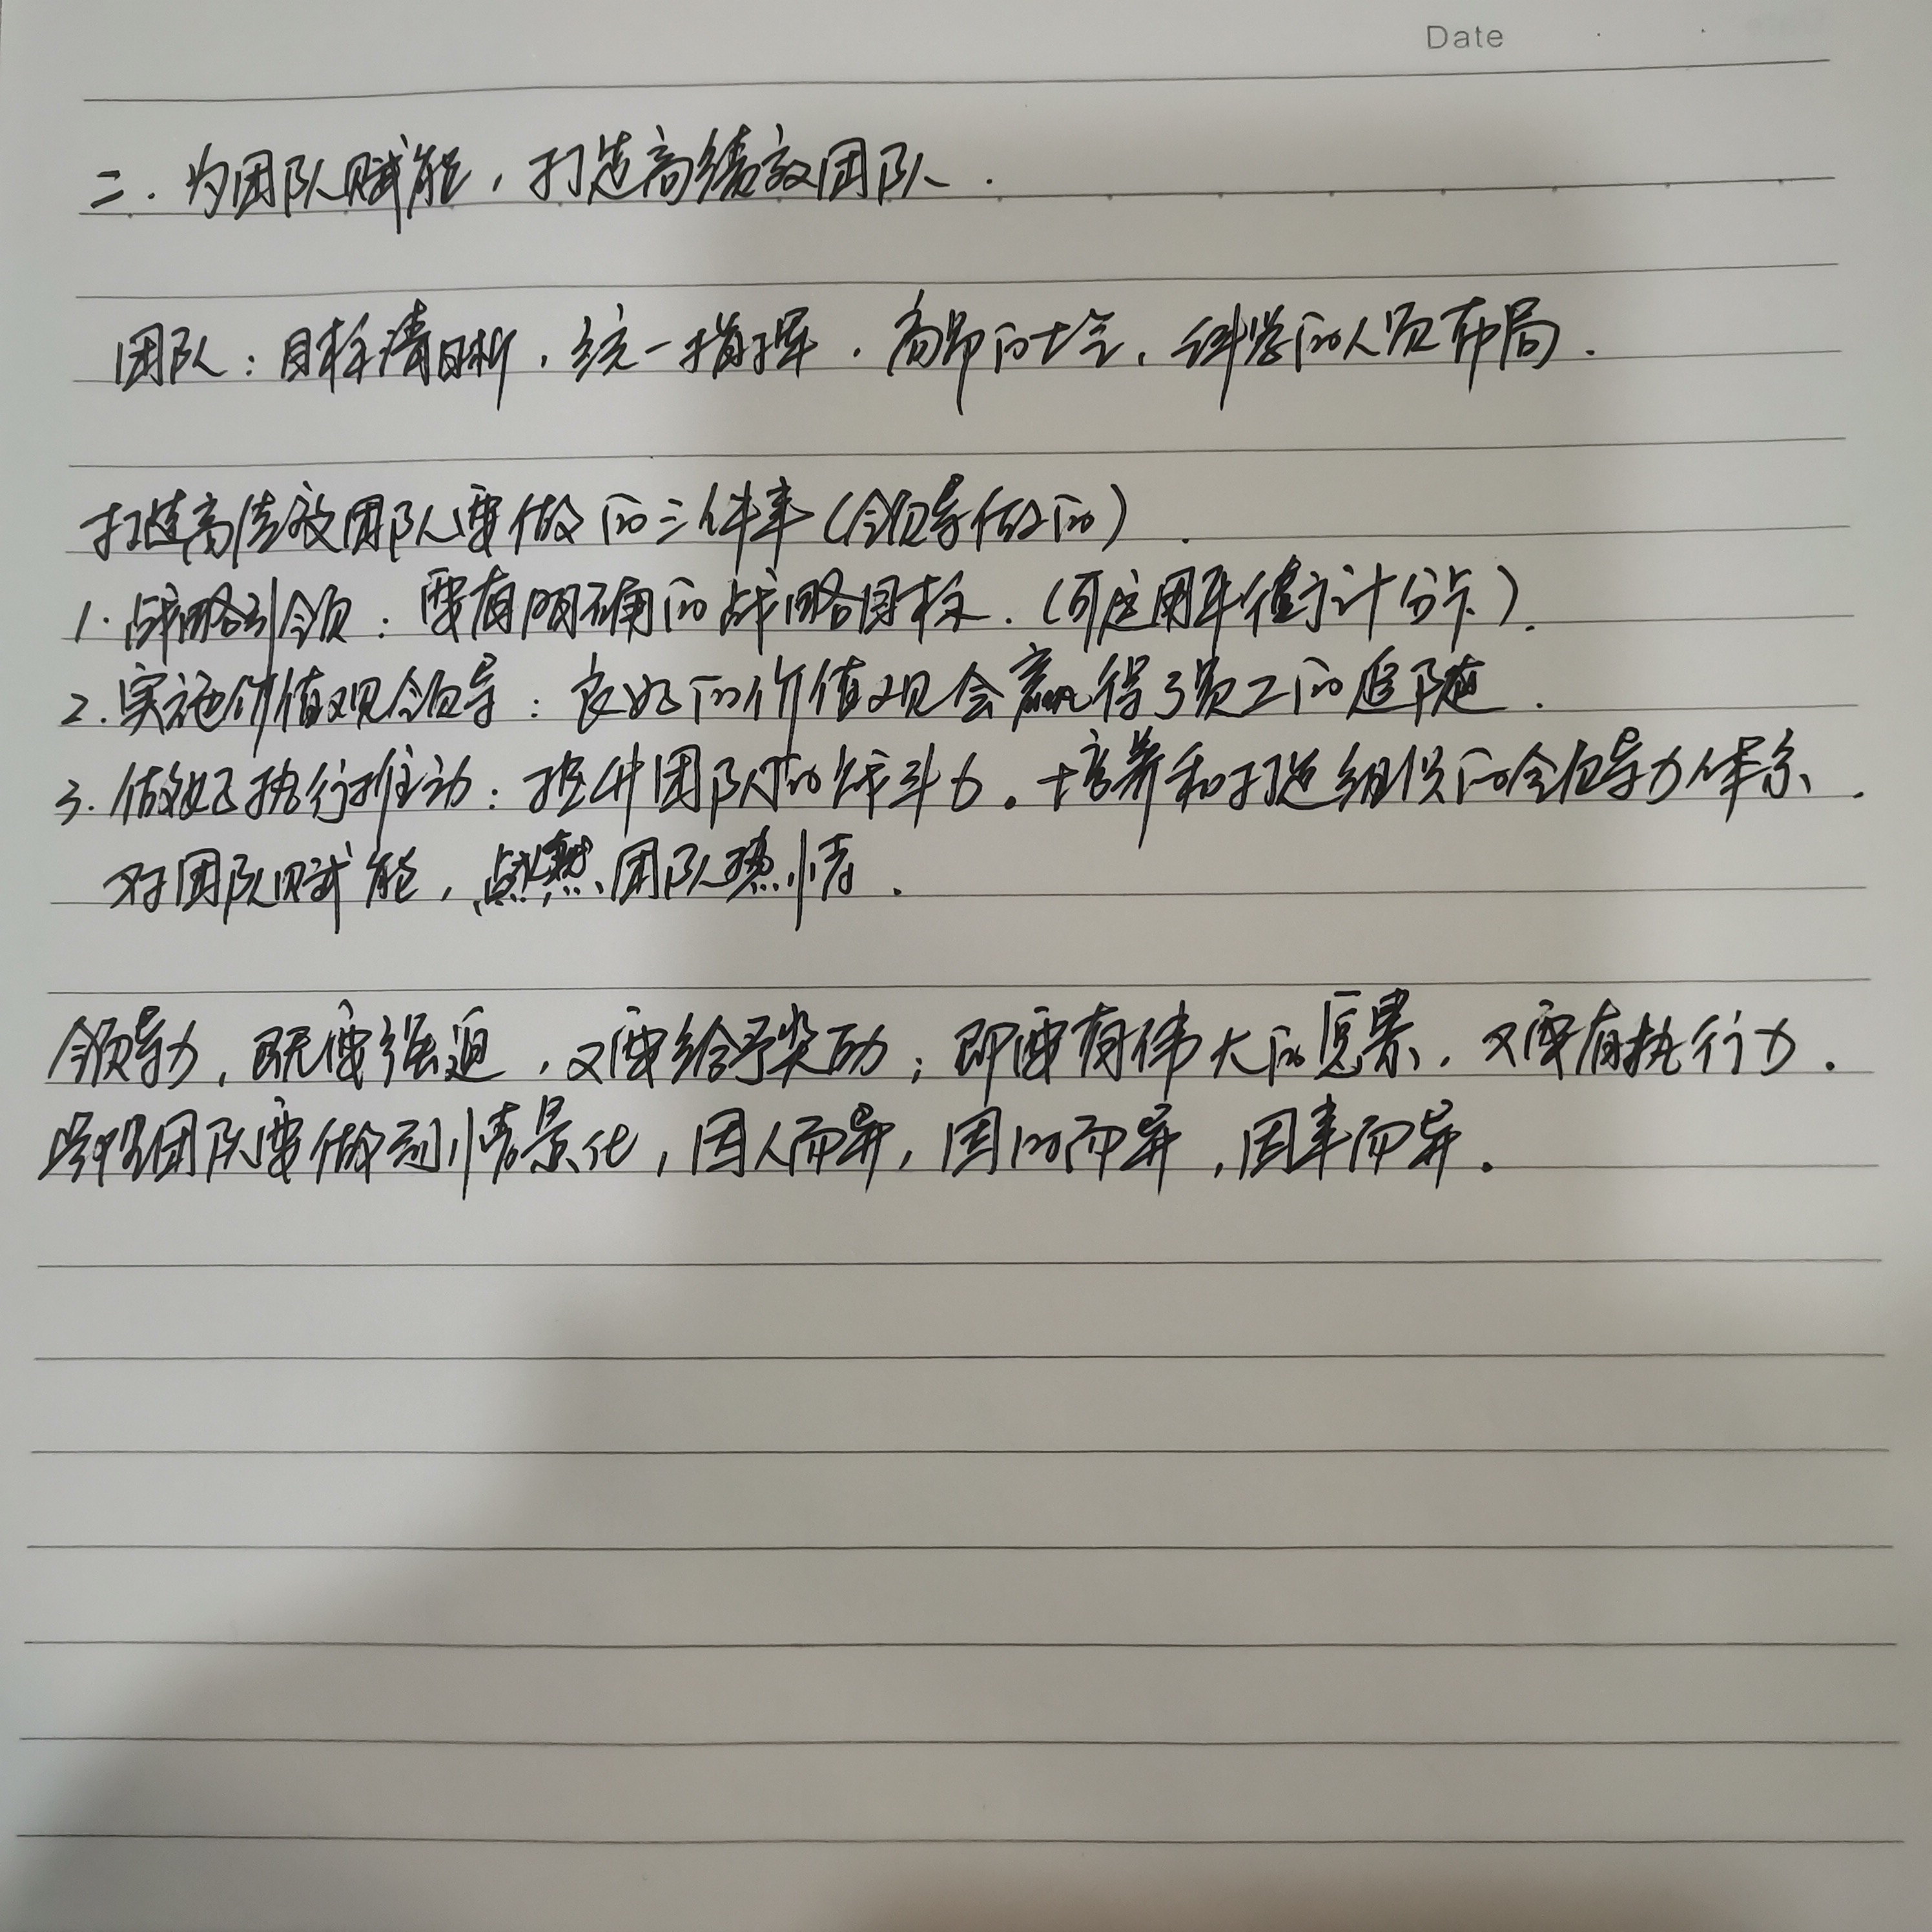 Date
二.为团队赋能,打造高绩效团队.
团队:目标清晰,统一指挥.高昂的士气、科学的人员布局.
打造高绩效团队要做的三件事(领导做的).
1.战略引领:要有明确的战略目标.(可应用平衡计分卡).
2.实施价值观领导:良好的价值观会赢得了员工的追随.
3.做好执行推动:提升团队的战斗力。培养和打造组织的领导力体系.
对团队赋能,点燃团队热情.
领导力,既要强迫,又要给予奖励;即要有伟大的愿景,又要有执行力.
团队要做到情景化,因人而异,因时而异,因事而异.